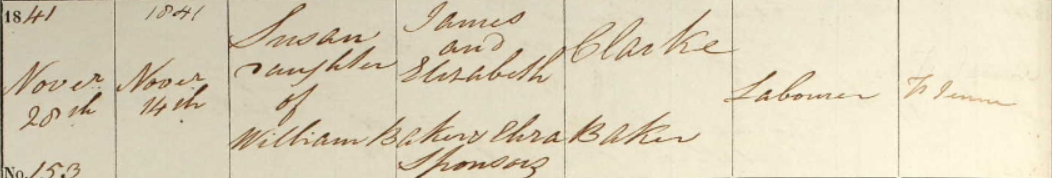 1841
Novr
28th
No. 153
1841
Novr
14th
Susan
Daughter
of
James
and
Elizabeth
Clarke
Labourer
William Baker & Eliza Baker
Sponsors